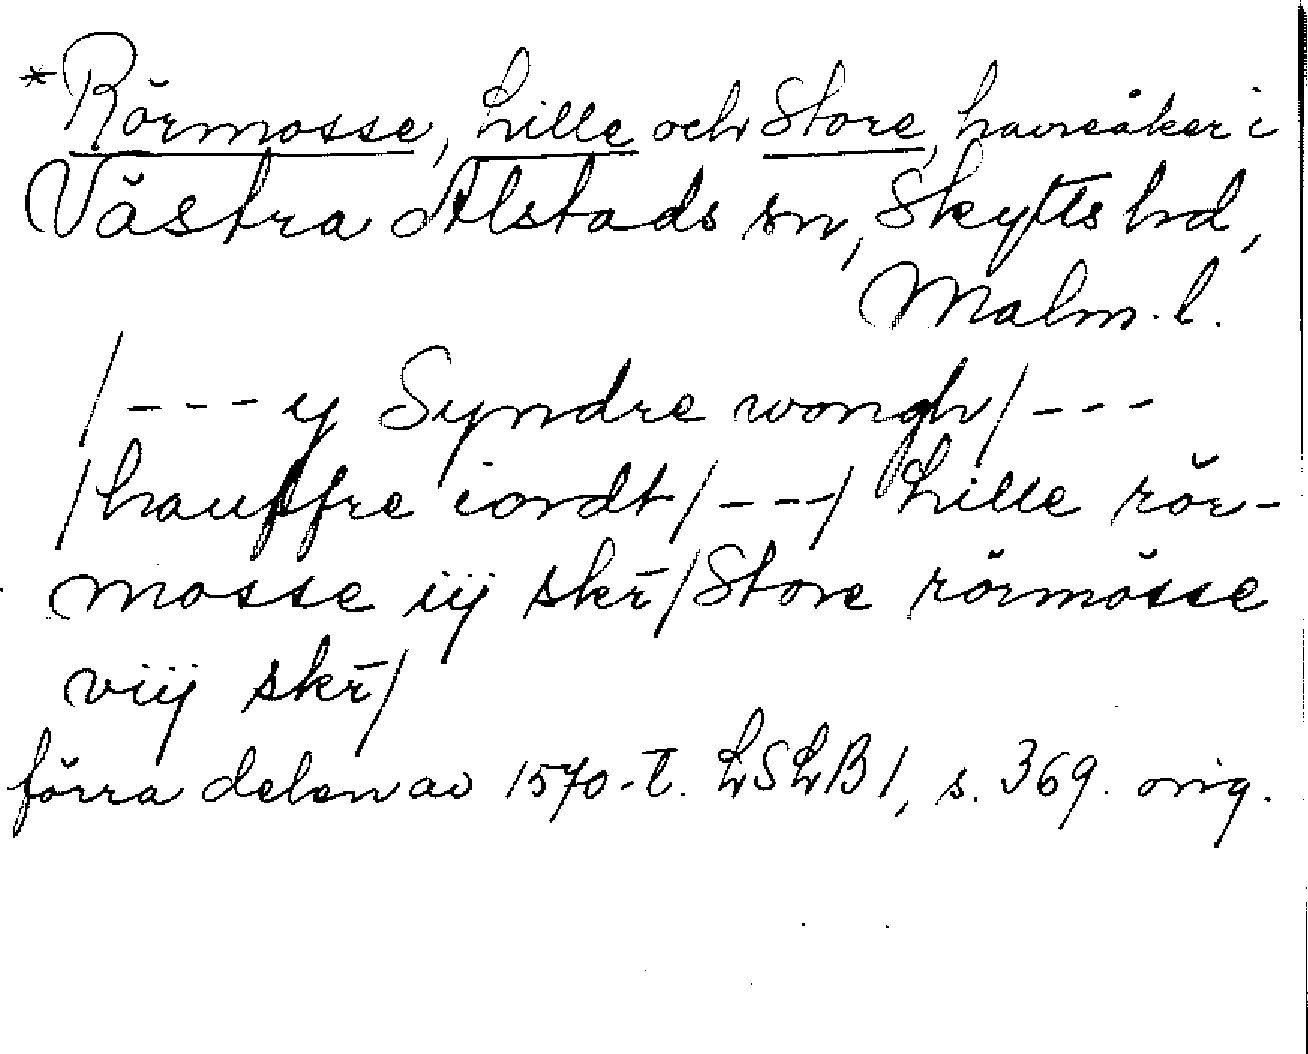 *Rörmosse, Lille och Store, havreåker i
Västra Alstads sn, Skytts hd,
Malm. l.
/--- y Syndre wongh/---
/hauffre iordt/---/ Lille rör-
mosse iij skr̄/Store rörmösse
viij skr̄/
förra delen av 1570-t. LSLB 1, s. 369. orig.